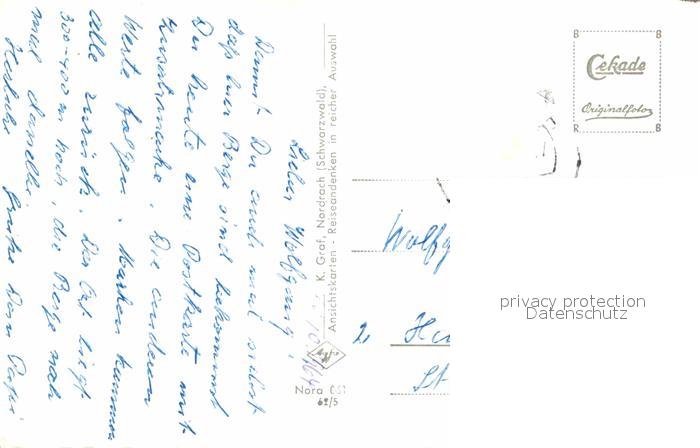 Lieber Wolfgang!
Damit Du auch mal siehst
daß hier Berge sind bekommst
Du heute eine Postkarte mit
Zusatzmarke. Die anderen
Werte folgen. Marken kommen
alle zurück. Der Ort liegt
300-400 m hoch, die Berge noch
mal dasselbe.
Herzliche Grüße Dein Papi
K. Graf, Nordrach (Schwarzwald),
Ansichtskarten - Reiseandenken in reicher Auswahl
Agfa
Nora
62/5
B B
Cekade
Originalfoto
R B
Wolfg
2
St
privacy protection
Datenschutz